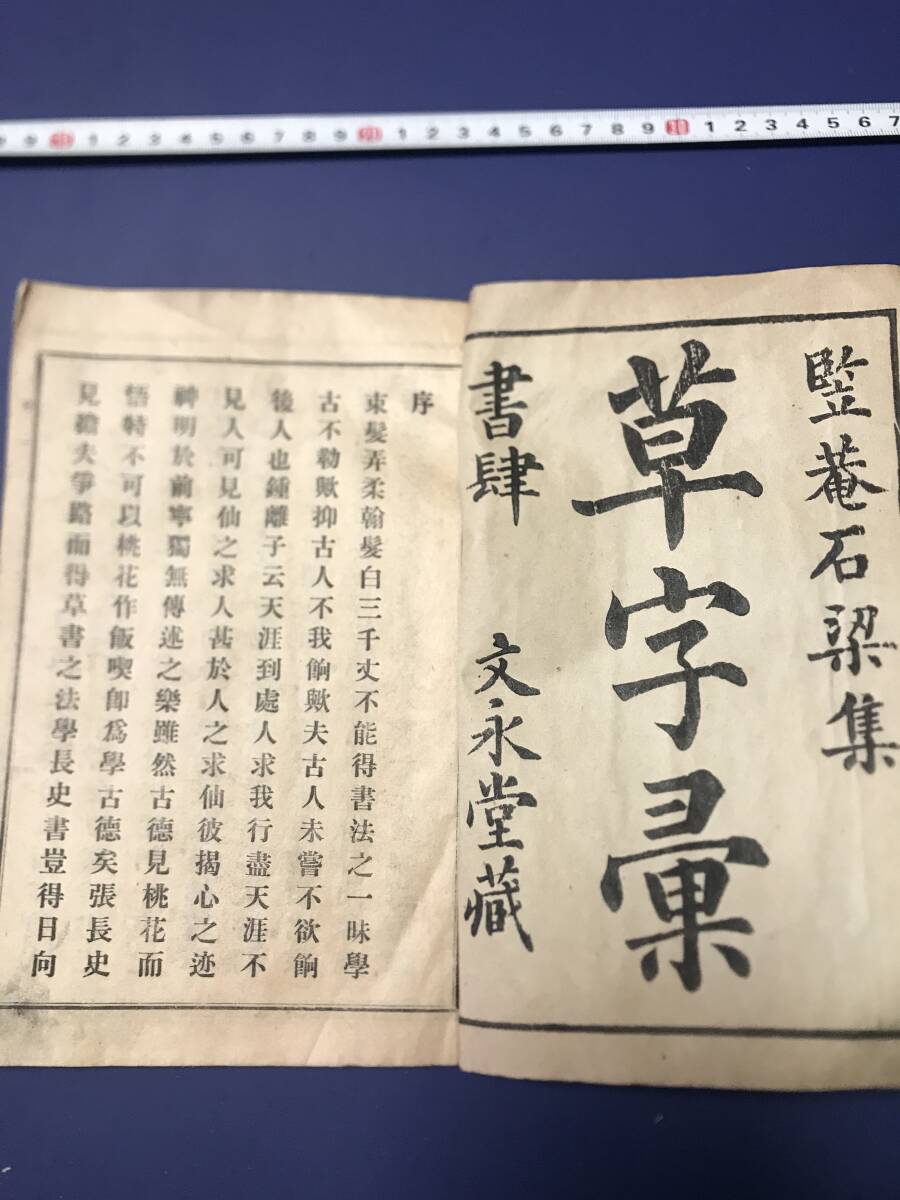 9 9 20 1 2 3 4 5 6 7 8 9 1 2 3 4 5 6 7 8 9 10 1 2 3 4 5 6 7
竪菴石梁集
草字彙
書肆 文永堂藏
序
束髮弄柔翰髮白三千丈不能得書法之一昧學
古不勒歟抑古人不我餉歟夫古人未嘗不欲餉
後人也鍾離子云天涯到處人求我行盡天涯不
見人可見仙之求人甚於人之求仙彼揭心之迹
神明於前寧獨無傳述之樂雖然古德見桃花而
悟特不可以桃花作飯喫卽爲學古德矣張長史
見擔夫爭路而得草書之法學長史書豈得日向